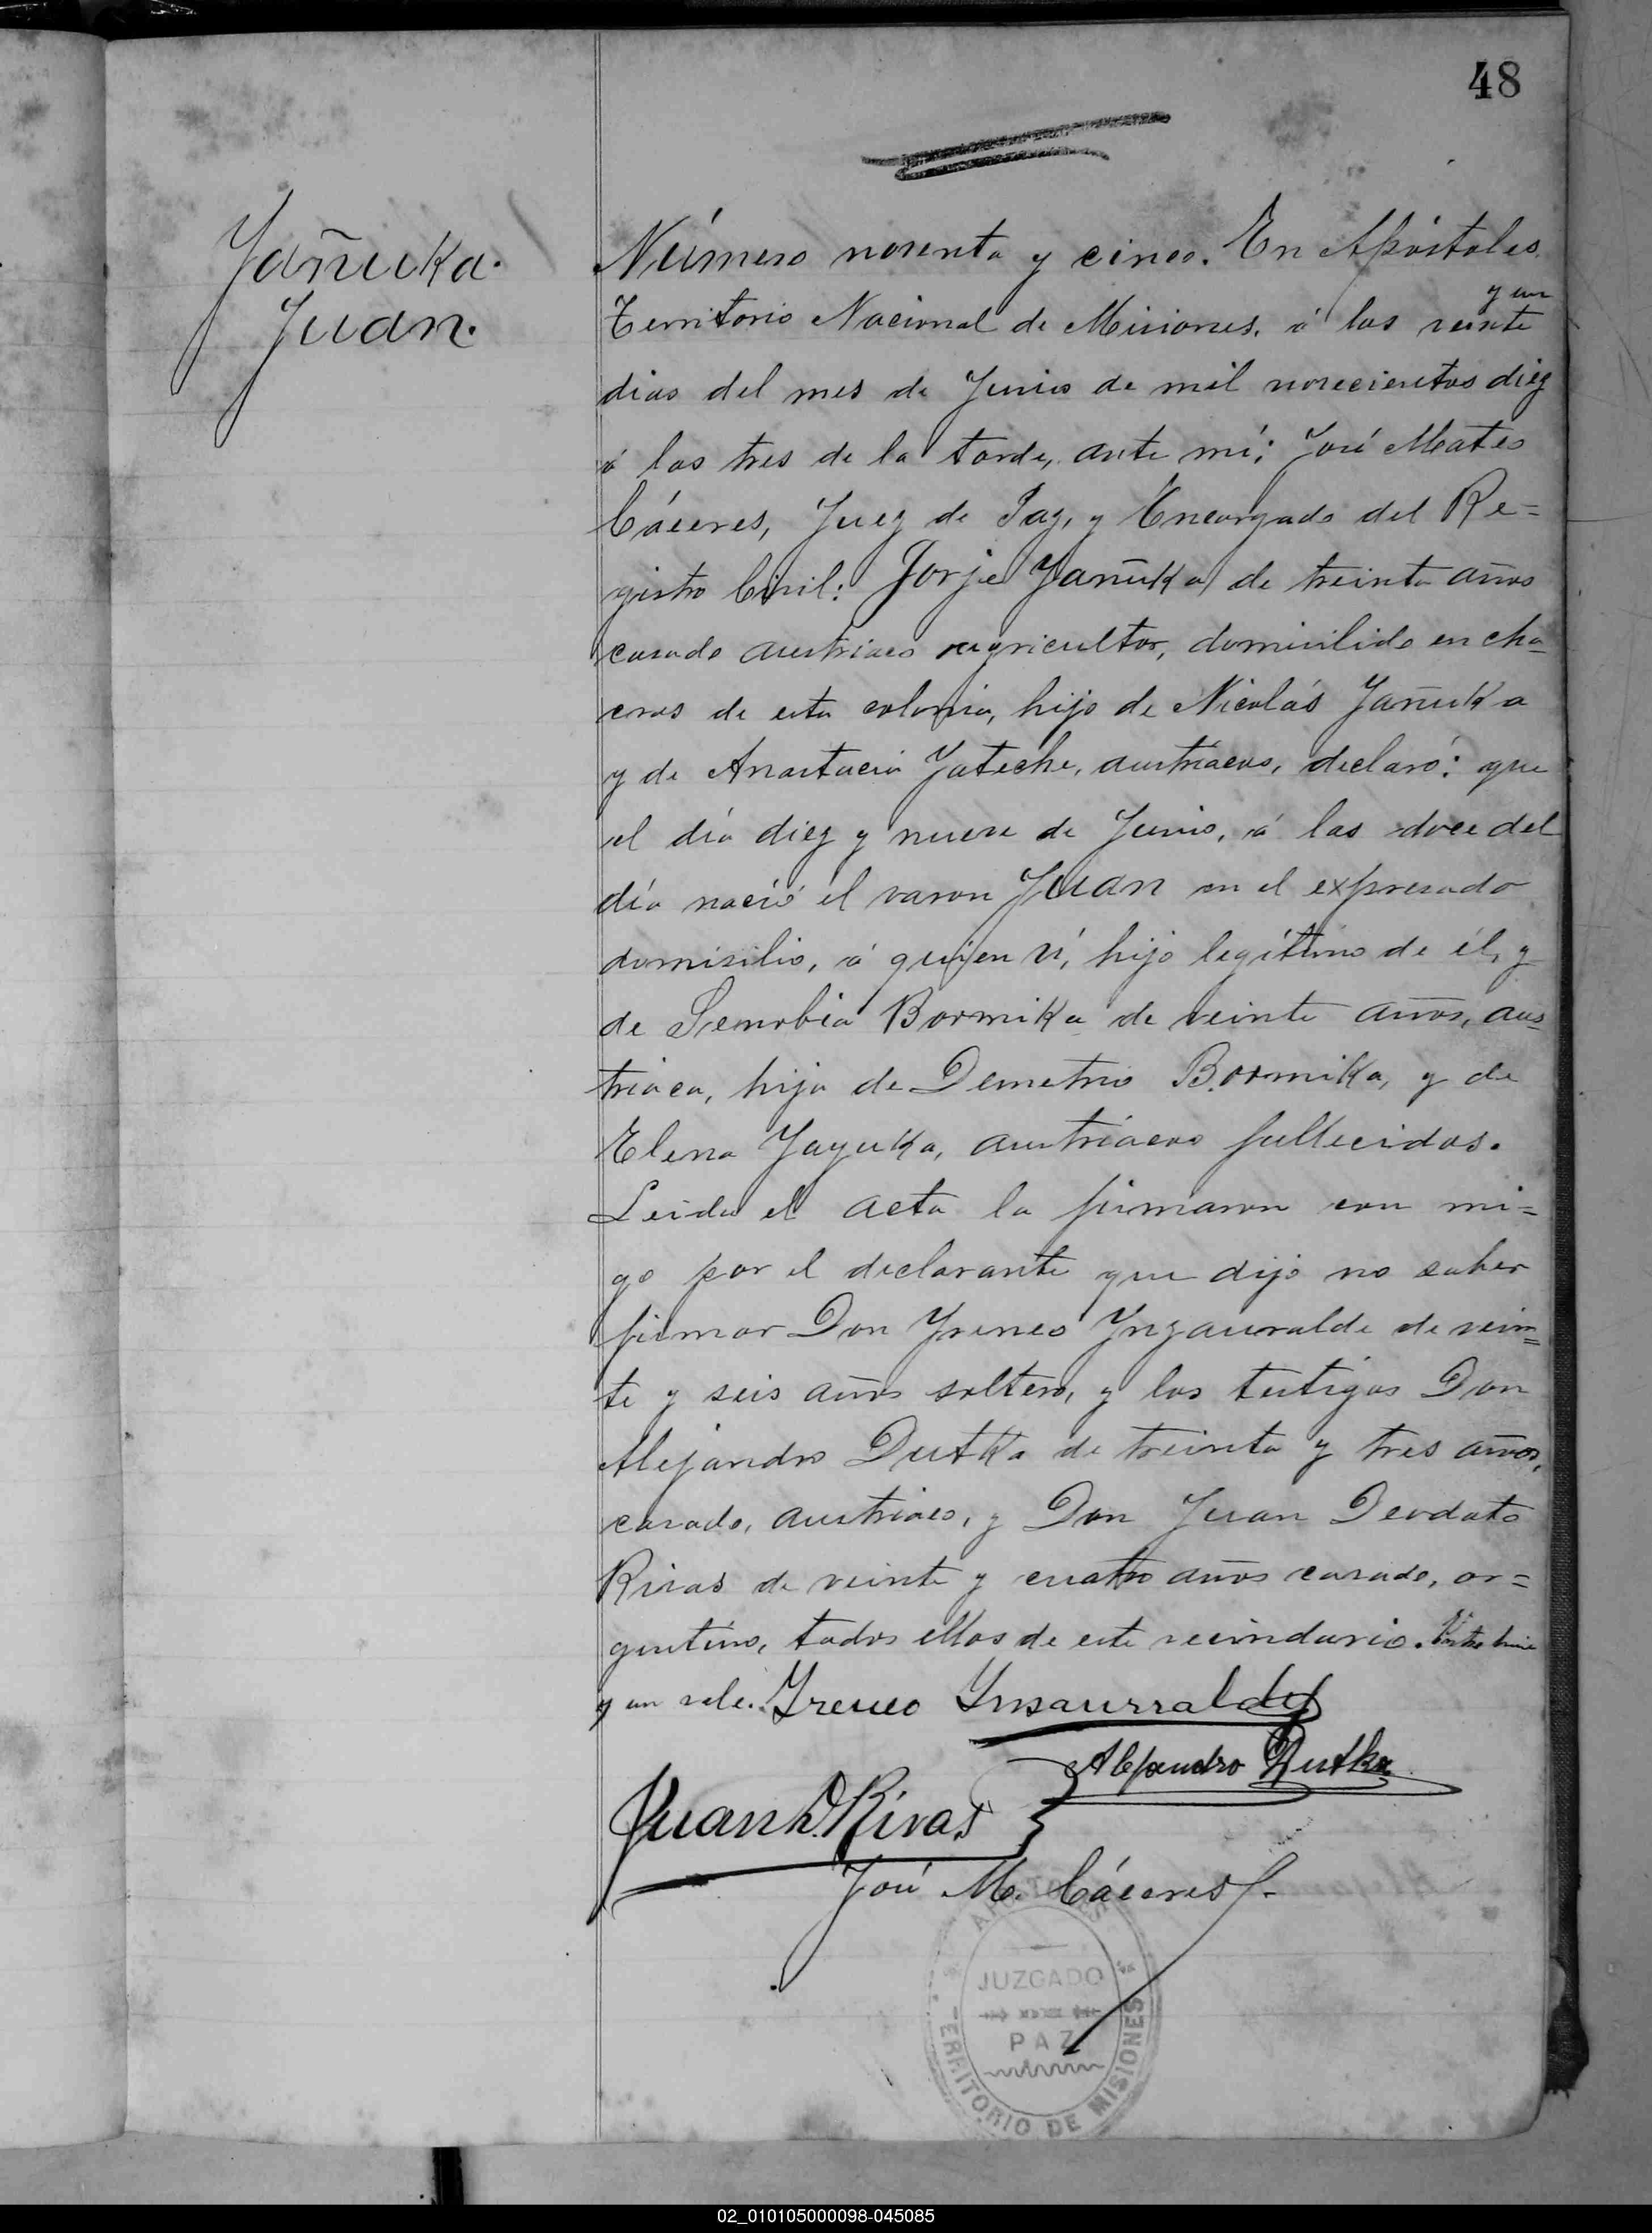 48
Yañuka.
Juan.
Número noventa y cinco. En Apóstoles
y un
Territorio Nacional de Misiones, á los veinte
dias del mes de Junio de mil novecientos diez
á las tres de la tarde, ante mí: José Mateo
Cáceres, Juez de Paz, y Encargado del Re=
gistro Civil: Jorje Yañuka de treinta años
casado austriaco agricultor, domicilido en cha=
cras de esta colonia, hijo de Nicolás Yañuka
y de Anastacia Yateche, austríacos, declaró: que
el día diez y nueve de Junio, á las doce del
día nació el varon Juan en el expresado
domisilio, á quien ví, hijo legítimo de él, y
de Senobia Bormika de veinte años, aus=
triaca, hija de Demetrio Bormika, y de
Elena Yayuka, austríacos fallecidos.
Leida el acta la firmaron con mi=
go por el declarante que dijo no saber
firmar Don Yreneo Ynzaurralde de vein=
te y seis años soltero, y los testigos Don
Alejandro Dutka de treinta y tres años,
casado, austriaco, y Don Juan Deodato
Rivas de veinte y cuatro años casado, ar=
gentino, todos ellos de este vecindario. Entre linea
y un vale. Yreneo Ynsaurralde
Alejandro Dutka
Juan D. Rivas
José M. Cáceres
APOSTOLES
JUZGADO
PAZ
TERRITORIO DE MISIONES
02_010105000098-045085